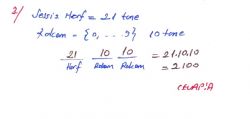 2/ Sessiz Harf = 21 tane
Rakam = {0, ... 9} 10 tane
21 10 10 = 21.10.10
Harf Rakam Rakam = 2100
CEVAP: A